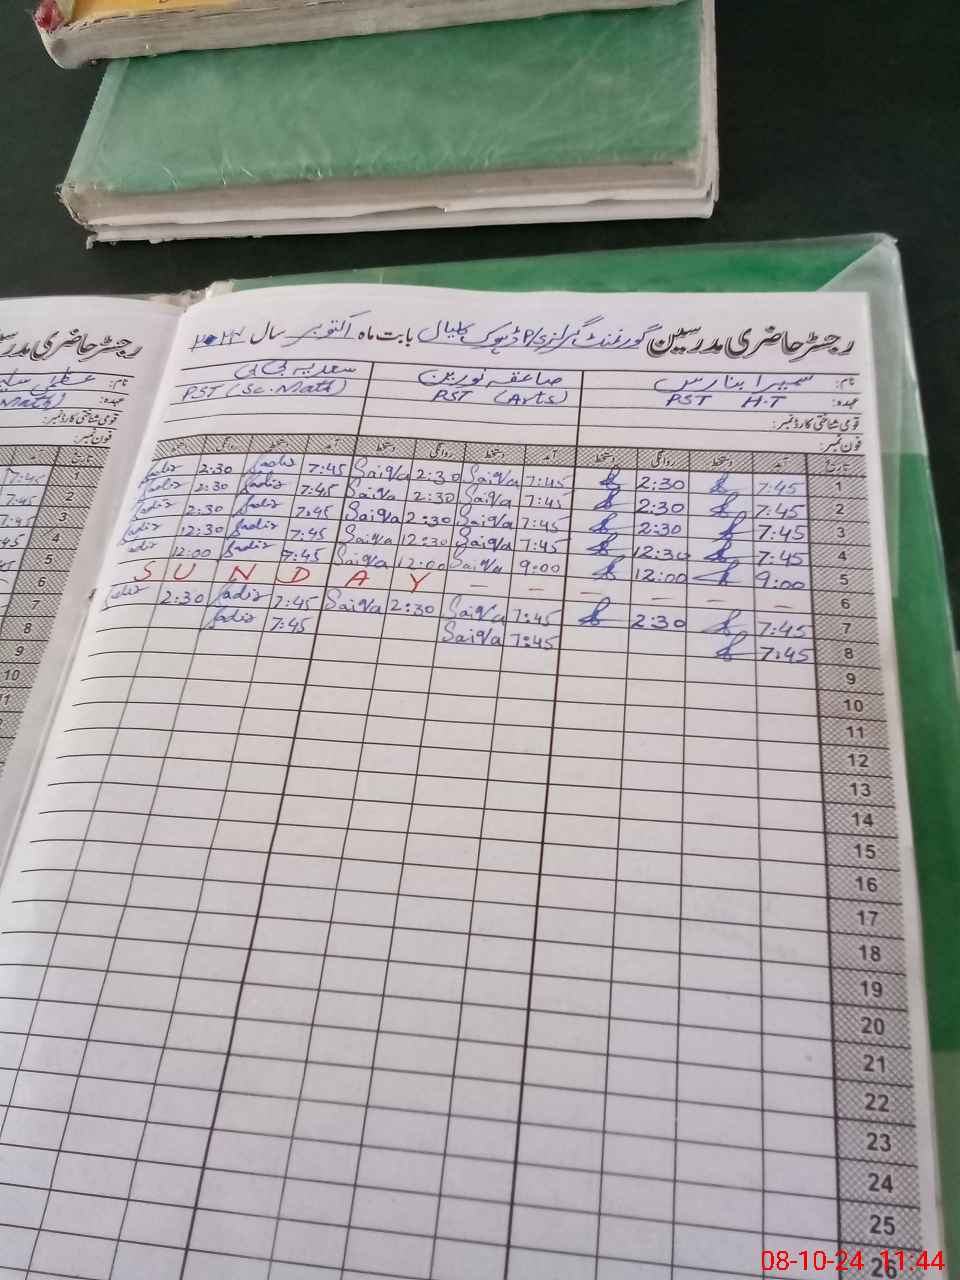 رجسٹر حاضری مدرسین گورنمنٹ گرلز P/S ڈہوک کلیال بابت ماہ اکتوبر سال ۲۰۲۴
نام: سمیرا بنارس صاعقہ نورین سعدیہ
عہدہ: PST H.T PST (Arts) PST (Sc.Math)
قومی شناختی کارڈ نمبر:
فون نمبر:
تاریخ آمد دستخط روانگی دستخط آمد دستخط روانگی دستخط آمد دستخط روانگی دستخط
1 7:45 2:30 7:45 Saiqa 2:30 Saiqa 7:45 Sadia 2:30 Sadia
2 7:45 2:30 7:45 Saiqa 2:30 Saiqa 7:45 Sadia 2:30 Sadia
3 7:45 2:30 7:45 Saiqa 2:30 Saiqa 7:45 Sadia 2:30 Sadia
4 7:45 12:30 7:45 Saiqa 12:30 Saiqa 7:45 Sadia 12:30 Sadia
5 9:00 12:00 9:00 Saiqa 12:00 Saiqa 7:45 Sadia 12:00 Sadia
6 SUNDAY — — — — — —
7 7:45 2:30 7:45 Saiqa 2:30 Saiqa 7:45 Sadia 2:30 Sadia
8 7:45 7:45 Saiqa 7:45 Sadia
9
10
11
12
13
14
15
16
17
18
19
20
21
22
23
24
25
26
رجسٹر حاضری
نام:
عہدہ: Math)
قومی شناختی کارڈ نمبر:
فون نمبر:
تاریخ
7:45
2 7:45
3 7:45
4
5
6
7
8
9
10
11
08-10-24 11:44